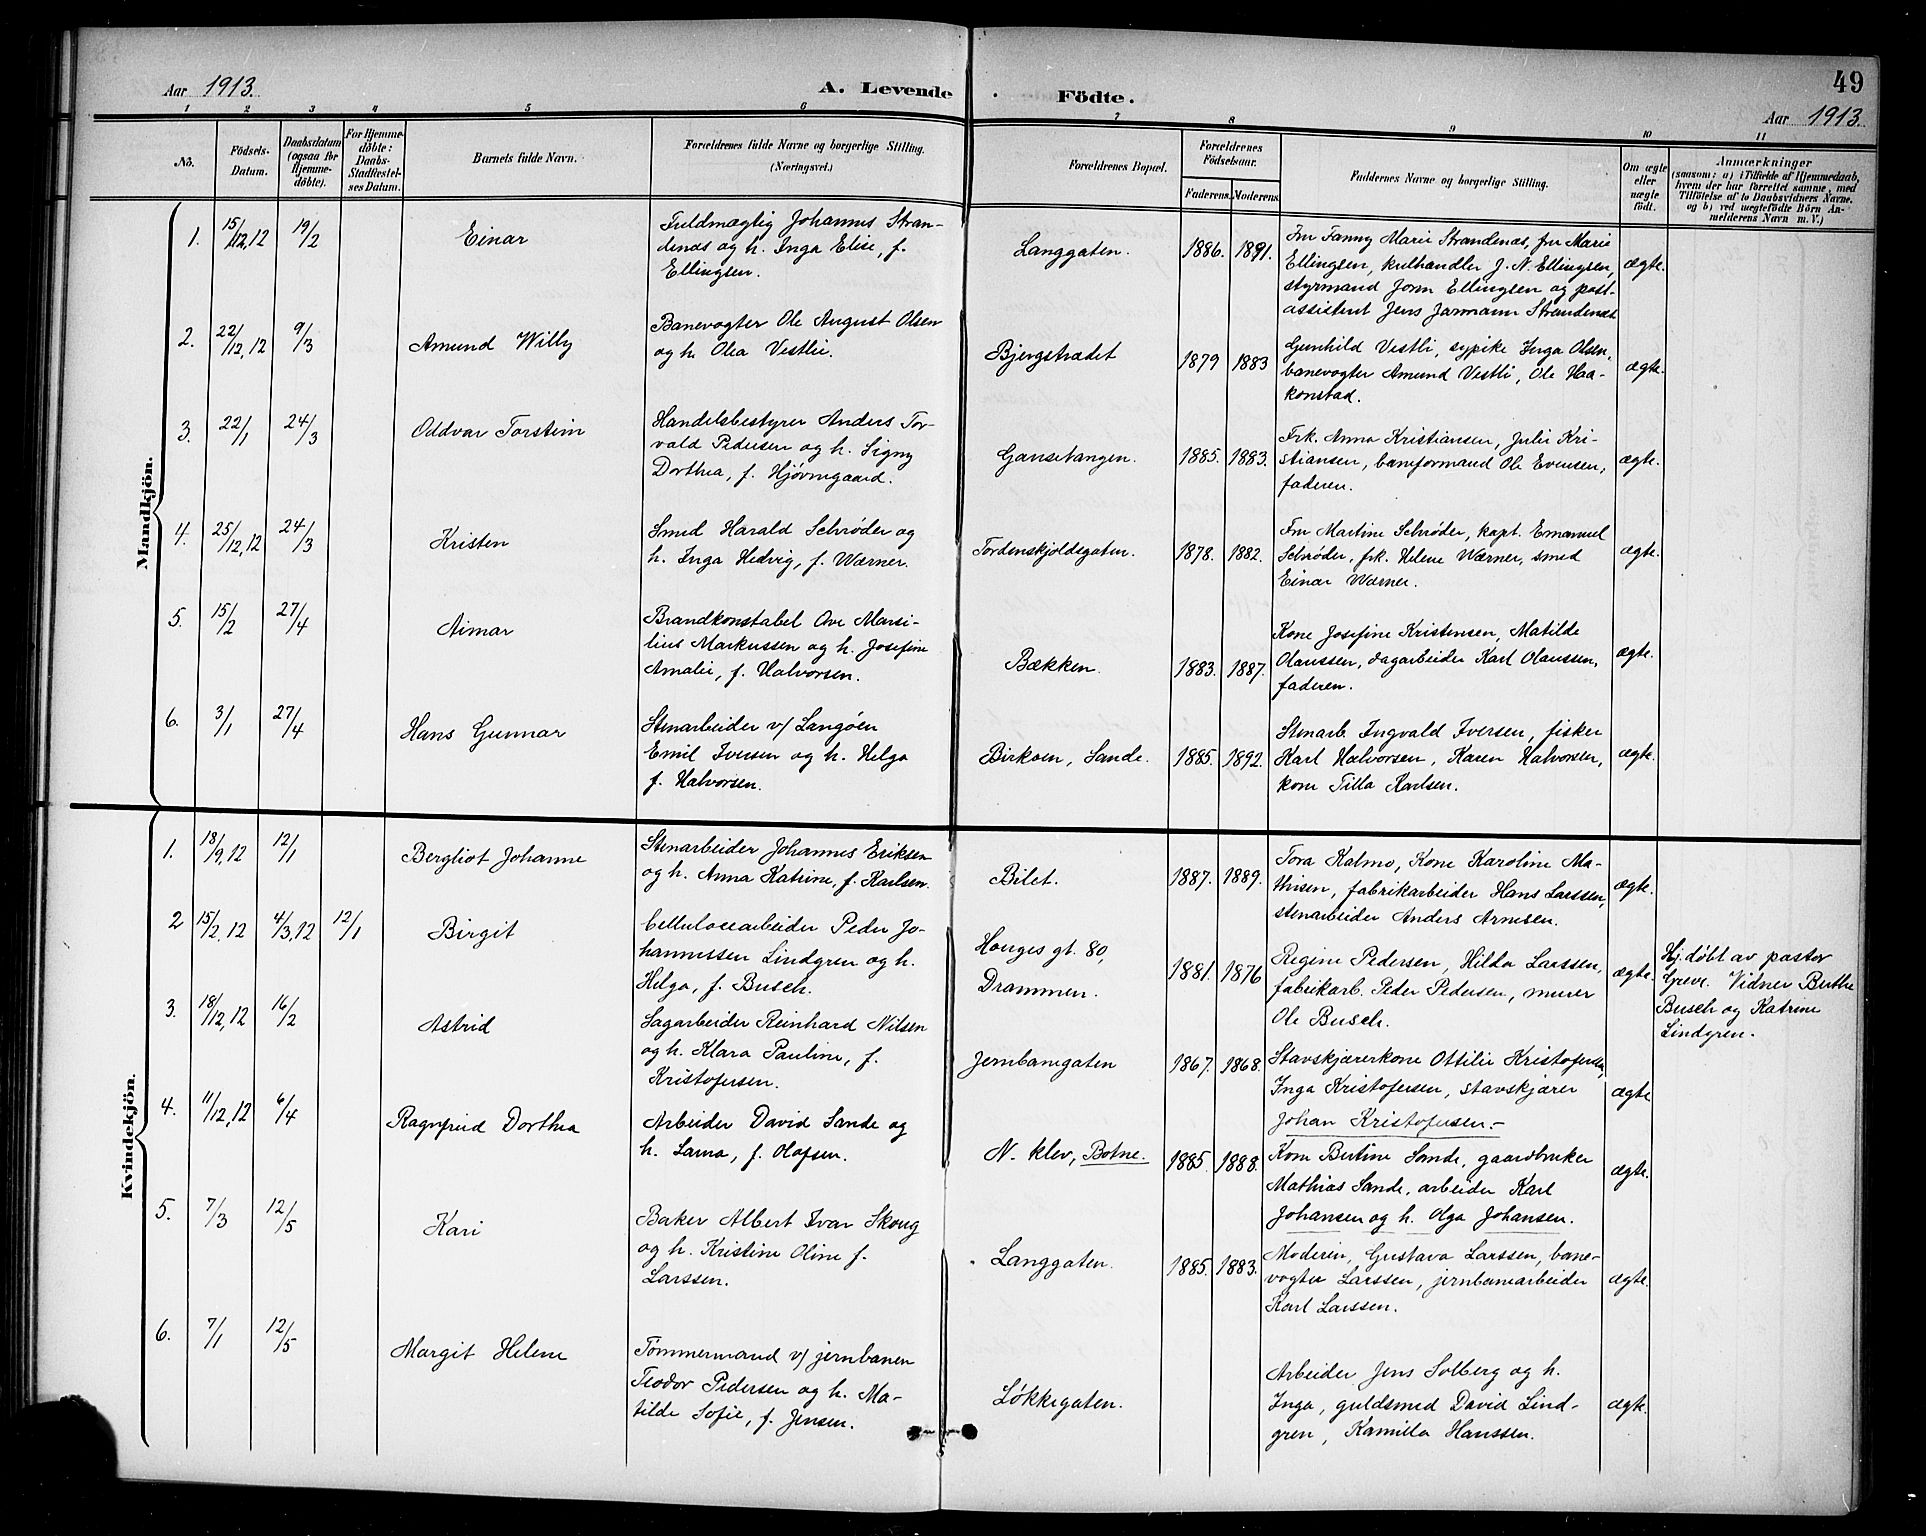 Aar 1913.
A. Levende Födte.
49
Aar 1913.
1 2 3 4 5 6 7 8 9 10 11
No.
Födsels-Datum.
Daabsdatum (ogsaa for Hjemme-döbte).
For Hjemme-döbte: Daabs-Stadfæstelses Datum.
Barnets fulde Navn.
Forældrenes fulde Navne og borgerlige Stilling. (Næringsvei.)
Forældrenes Bopæl.
Forældrenes Födselsaar.
Faderens. Moderens.
Faddernes Navne og borgerlige Stilling.
Om ægte eller uægte födt.
Anmærkninger
(saasom: a) i Tilfælde af Hjemmedaab,
hvem der har forrettet samme, med
Tilföielse af to Daabsvidners Navne.
og b) ved uægtefödte Börn An-
melderens Navn m. V.)
Mandkjön.
1. 15/12,12 19/2 Einar
Fuldmægtig Johannes Stran-
denæs og h. Inga Elise, f.
Ellingsen.
Langgaten. 1886. 1891.
Fru Fanny Marie Strandenæs, fru Marie
Ellingsen, kulhandler J. N. Ellingsen,
styrmand Jorm Ellingsen og post-
assistent Jens Jarmann Strandenæs
ægte.
2. 22/12,12 9/3 Amund Willy
Banevogter Ole August Olsen
og h. Olea Vestlie.
Bjergstrædet 1879 1883
Gunhild Vestli, sypike Inga Olsen,
banevogter Amund Vestli, Ole Haa-
konstad.
ægte.
3. 22/1 24/3 Oddvar Torstein
Handelsbestyrer Anders Tor-
vald Pedersen og h. Signy
Dorthea, f. Hjørnegaard.
Gausetangen. 1885. 1883.
Frk. Anna Kristiansen, Julie Kri-
stiansen, baneformand Ole Evensen,
faderen.
ægte.
4. 25/12,12 24/3 Kristen
Smed Harald Schrøder og
h. Inga Hedvig, f. Wærner.
Tordenskjoldsgaten. 1878. 1882.
Fru Martine Schrøder, kapt. Emanuel
Schrøder, frk. Helene Wærner, smed
Einar Wærner.
ægte.
5. 15/2 27/4 Aimar
Brandkonstabel Ove Marsi-
lius Markussen og h. Josefine
Amalie, f. Halvorsen.
Bækken. 1883. 1887.
Kone Josefine Kristensen, Matilde
Olaussen, dagarbeider Karl Olaussen,
faderen.
ægte.
6. 3/1 27/4 Hans Gunnar
Stenarbeider v/ Langøen
Emil Iversen og h. Helga
f. Halvorsen.
Birkøen, Sande. 1885. 1892.
Stenarb. Ingvald Iversen, fisker
Karl Halvorsen, Karen Halvorsen,
kone Tilla Karlsen.
ægte.
Kvindekjön.
1. 18/9,12 12/1 Bergliot Johanne
Stenarbeider Johannes Eriksen
og h. Anna Katrine, f. Karlsen.
Bilet. 1887. 1889.
Tora Kalmo, Kone Karoline Ma-
thisen, fabrikarbeider Hans Larssen,
stenarbeider Anders Arnesen.
ægte.
2 15/2,12 4/3,12 12/1 Birgit
Cellulosearbeider Peder Jo-
hannessen Lindgren og h.
Helga, f. Busch.
Hauges gt. 80,
Drammen. 1881. 1876
Regine Pedersen, Hilda Larssen,
fabrikarb. Peder Pedersen, murer
Ole Busch.
ægte.
Hj. døbt av pastor
Greve. Vidner Berthe
Busch og Katrine
Lindgren.
3. 18/12,12 16/2 Astrid
Sagarbeider Reinhard Nilsen
og h. Klara Pauline, f.
Kristofersen.
Jernbanegaten 1867. 1868.
Stavskjærerkone Ottilie Kristofersen,
Inga Kristofersen, stavskjærer
Johan Kristofersen.-
ægte
4. 11/12,12 6/4 Ragnfrid Dorthea
Arbeider David Sande og
h. Laura, f. Olafsen.
N. klev, Botne. 1885. 1888.
Kone Bertine Sande, gaardbruker
Mathias Sande, arbeider Karl
Johansen og h. Olga Johansen.
ægte.
5. 7/3 12/5 Kari
Baker Albert Ivar Skoug
og h. Kristine Oline f.
Larssen.
Langgaten. 1885. 1883.
Moderen, Gustava Larssen, bane-
vogter Larssen, jernbanearbeider
Karl Larssen.
ægte.
6. 7/1 12/5 Margit Helene
Tømmermand v/ jernbanen
Teodor Pedersen og h. Ma-
tilde Sofie, f. Jensen.
Løkkegaten.
Arbeider Jens Solberg og h.
Inga, guldsmed David Lind-
gren, Kamilla Hanssen.
ægte.